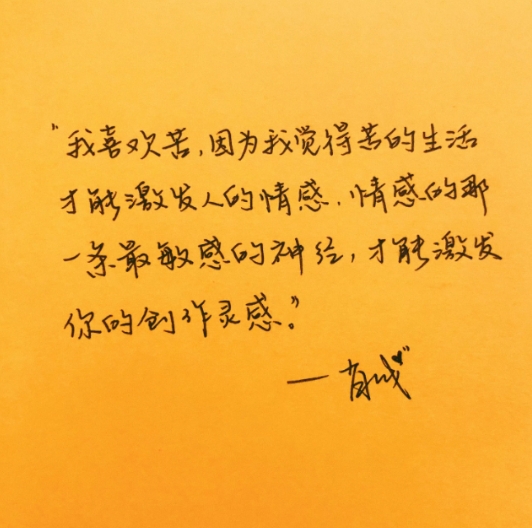 "我喜欢苦,因为我觉得苦的生活
才能激发人的情感,情感的那
一条最敏感的神经,才能激发
你的创作灵感。"
—肖战